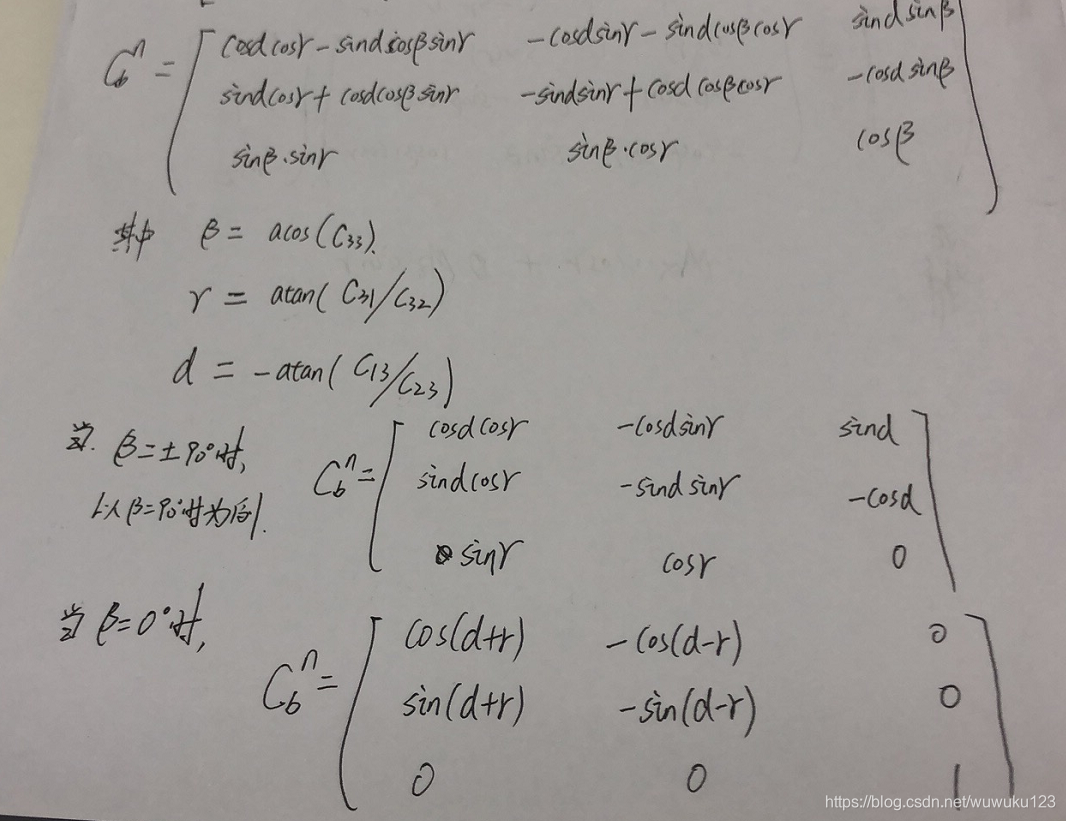 C_b^n = [ cosα cosγ - sinα cosβ sinγ   -cosα sinγ - sinα cosβ cosγ   sinα sinβ
sinα cosγ + cosα cosβ sinγ   -sinα sinγ + cosα cosβ cosγ   -cosα sinβ
sinβ·sinγ   sinβ·cosγ   cosβ ]
其中 β = acos(C33).
γ = atan(C31/C32)
α = -atan(C13/C23)
当. β=±90°时,
以β=90°时为例.
C_b^n = [ cosα cosγ   -cosα sinγ   sinα
sinα cosγ   -sinα sinγ   -cosα
sinγ   cosγ   0 ]
当 β=0°时,
C_b^n = [ cos(α+γ)   -cos(α-γ)   0
sin(α+γ)   -sin(α-γ)   0
0   0   1 ]
https://blog.csdn.net/wuwuku123